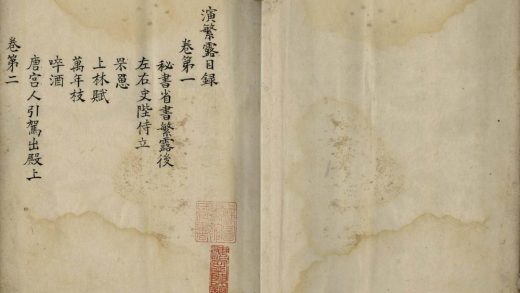 演繁露目録
卷第一
秘書省書繁露後
左右史陛侍立
罘罳
上林賦
萬年枝
啐酒
唐宮人引駕出殿上
卷第二